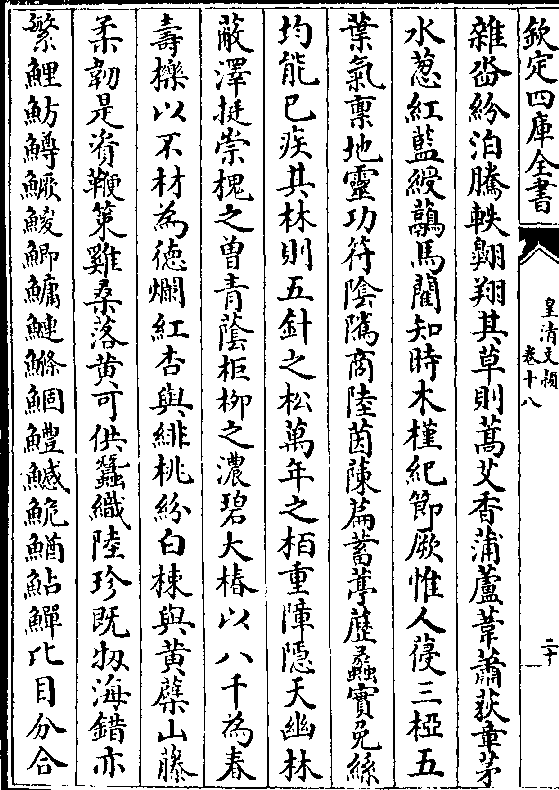 欽定四庫全書
皇清文頴
卷十八
二十
雜沓紛泊騰軼翺翔其草則蒿艾香蒲蘆葦蕭荻章茅
水葱紅藍綬虉馬藺知時木槿紀節厥惟人葠三椏五
葉氣禀地靈功符陰隲商陸茵蔯萹蓄葶藶蠡實兔絲
均能已疾其林則五針之松萬年之柏重障隱天幽林
蔽澤挺崇槐之曾青蔭柜栁之濃碧大椿以八千為春
壽櫟以不材為徳爛紅杏與緋桃紛白楝與黄蘗山藤
柔韌是資鞭策雞桑落黄可供蠶織陸珍既牣海錯亦
繁鯉魴鱒鱖鮻鯽鱅鰱鰷鯝鱧鱤鮠鰌鮎鱓比目分合